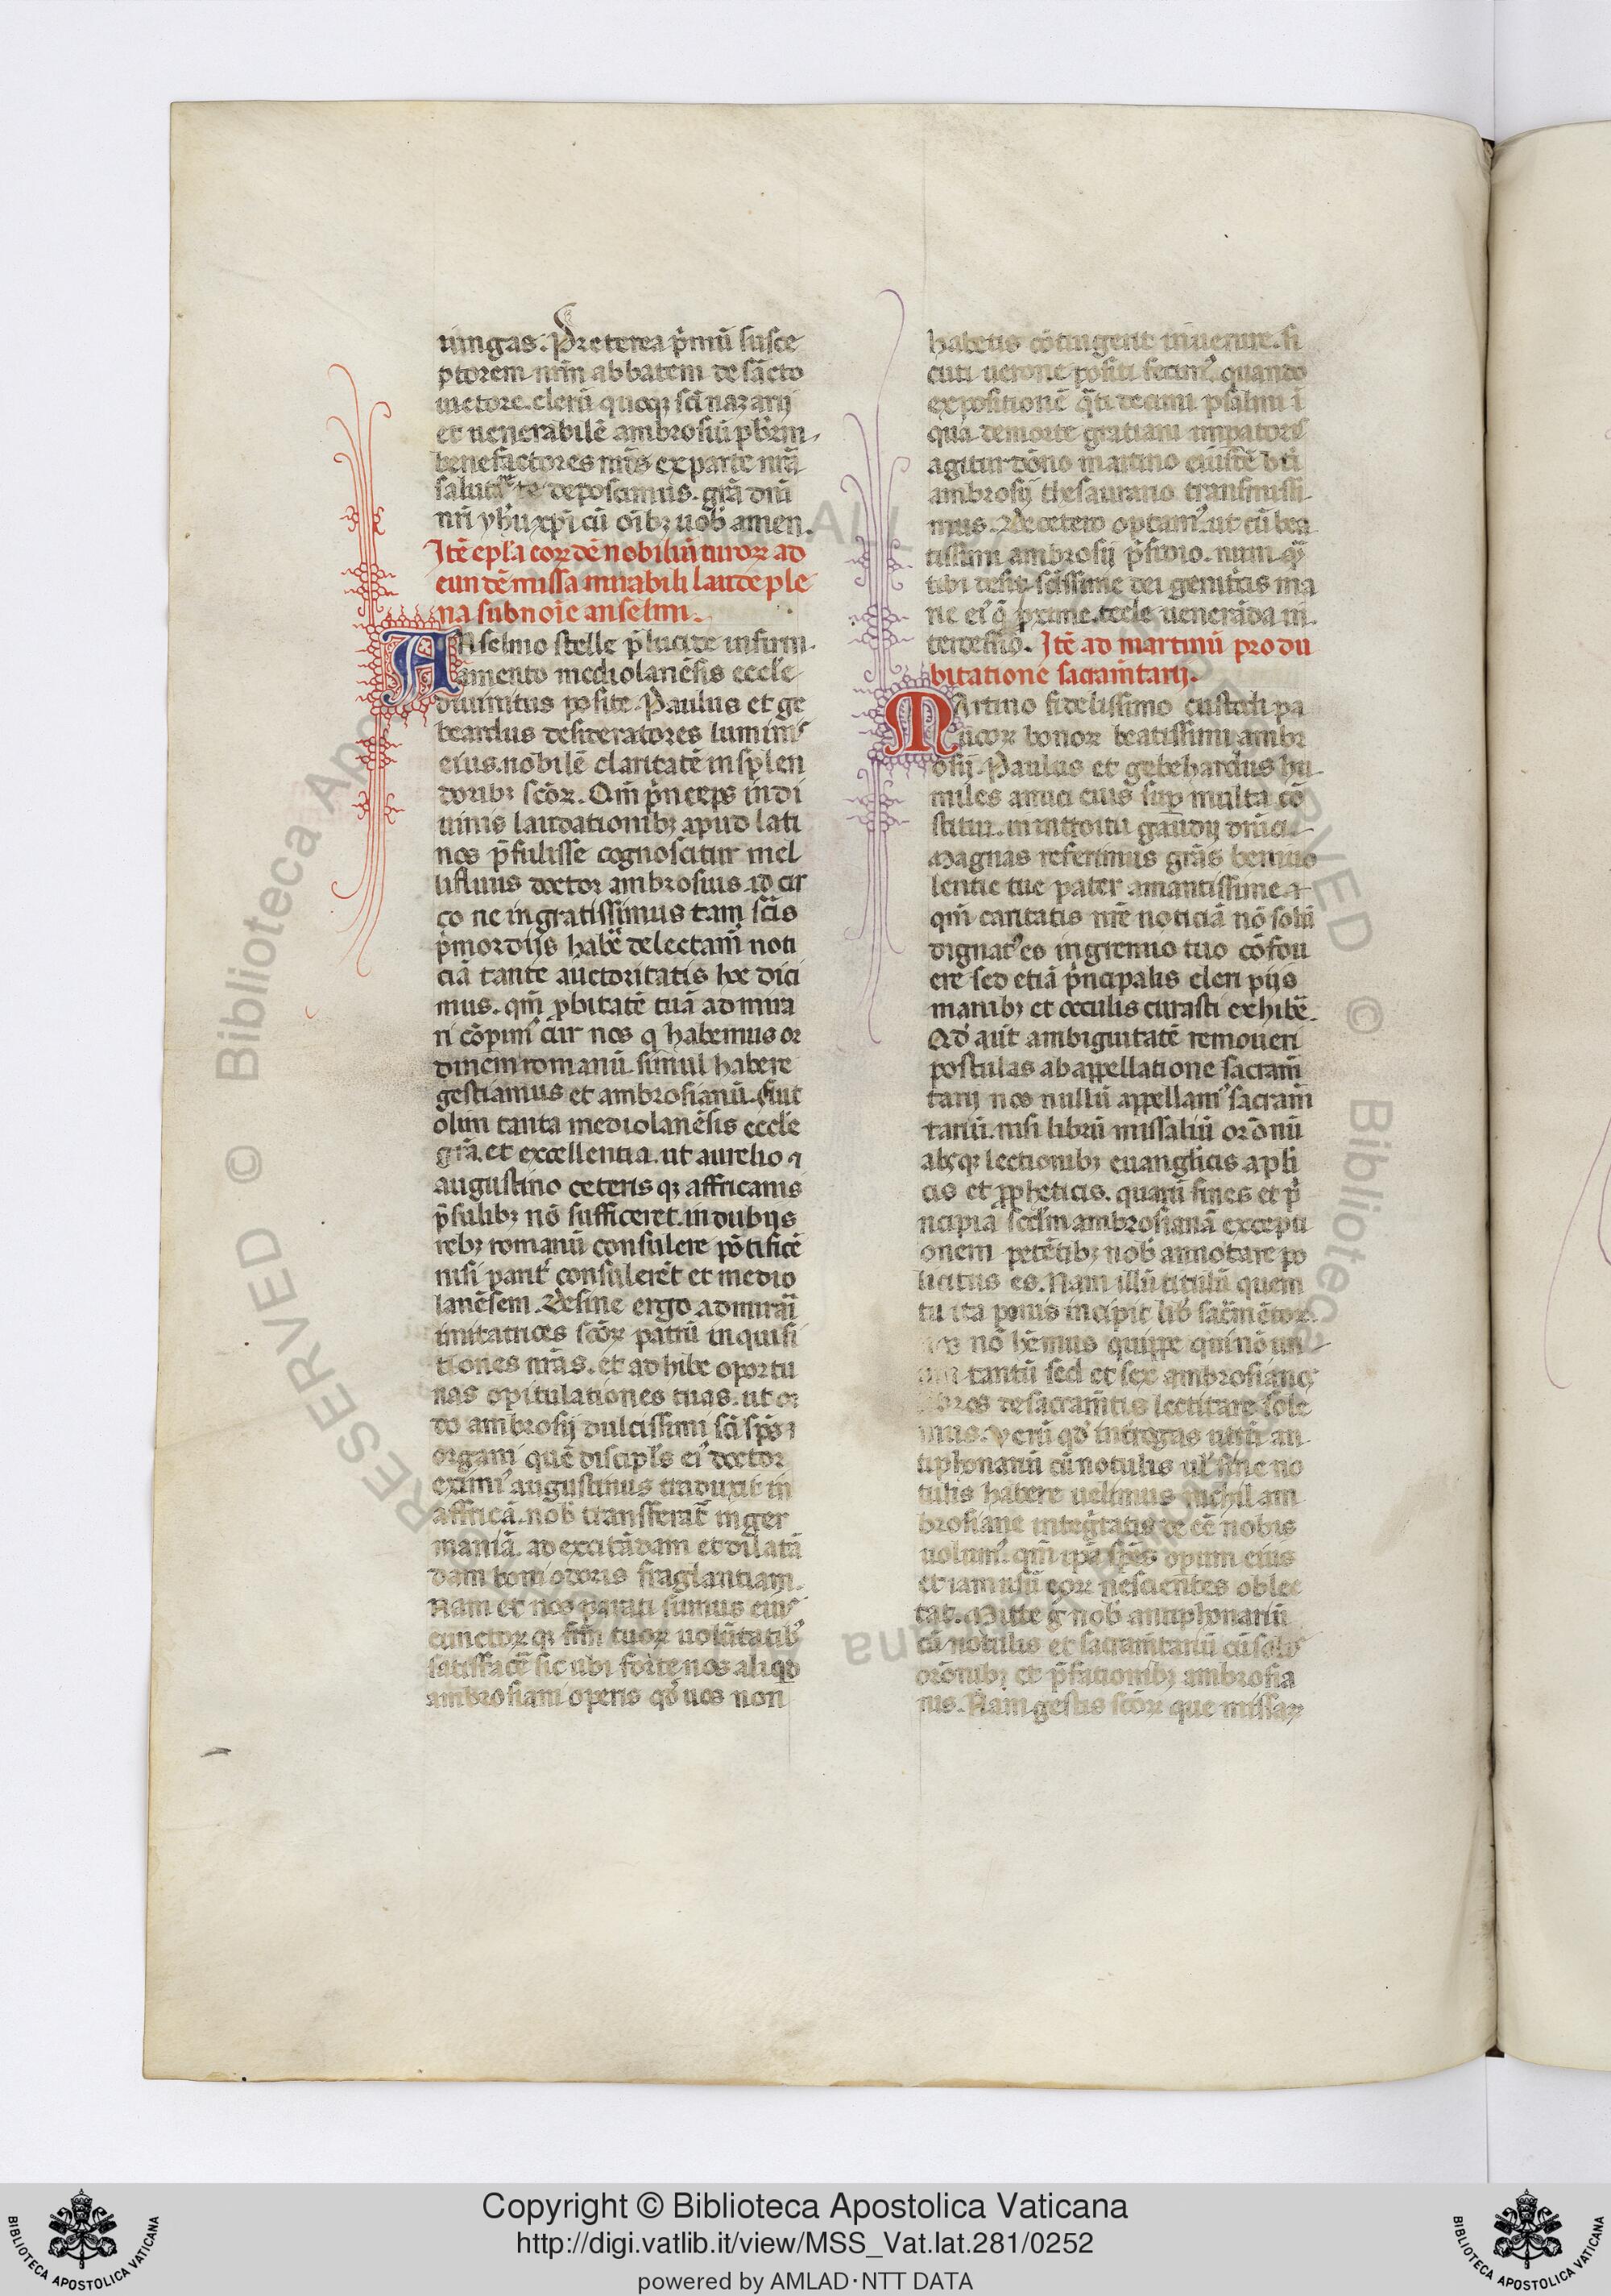 uingas. Preterea p̄mū susce
ptorem nr̄m abbatem de sācto
uictore. clerū quoqȝ sc̄i nazarij
et uenerabilē ambrosiū pb̄rm
benefactores nr̄os ex parte nr̄a
salutare te deposcimus. gr̄a dn̄i
nr̄i yh̄u xp̄i cū oīb; uob̄ amen.
Itē epl̄a eorūdē nobiliū uiroꝝ ad
eundē missa mirabili laude ple
na sub noīe anselmi.
Anselmo stelle p̄lucide in firm
amento mediolanēsis eccl̄e
diuinitus posite. Paulus et ge
beardus desideratores luminis
eius. nobilē claritatē in splen
dorib; sc̄oꝝ. Qm̄ p̄nceps in di
uinis laudationib; apud lati
nos p̄fulisse cognoscitur mel
lifluus doctor ambrosius. id cir
co ne ingratissimus tam sc̄is
p̄mordijs habē delectam̄ noti
ciā tante auctoritatis hoc dici
mus. qm̄ p̄bitatē tuā admira
ri cōpim̄ cur nos q habemus or
dinem romanū. simul habere
gestiamus et ambrosianū. fuit
olim tanta mediolanēsis eccl̄e
gr̄a. et excellentia. ut aurelio ⁊
augustino ceterisqȝ affricanis
p̄sulib; nō sufficeret. in dubijs
reb; romanū consulere pōtificē
nisi parit̄ consulerēt et medio
lanēsem. Desine ergo admirari
imitatrices sc̄oꝝ patrū inquisi
tiones nr̄as. et adhibe oportu
nas opitulationes tuas. ut or
do ambrosij dulcissimi sc̄i sp̄s
organi quē discipl̄s ei᾽ doctor
eximi᾽ augustinus traduxit in
affricā. nob̄ transferat̄ in ger
maniā. ad excitādam et dilatā
dam boni odoris fraglantiam.
Nam et nos parati sumus eius
cunctoꝝ qȝ frm̄ tuoꝝ uolūtatib᾽
satisfacē sic ubi forte nos aliqd
ambrosiani operis qd̄ uos non
habetis cōtingerit inuenire. si
cuti uerone positi fecim᾽. quando
expositionē q̄ti decimi psalmi ī
qua de morte gratiani imp̄atoris
agitur dōno martino eiusdē bt̄i
ambrosij thesaurario transmissi
mus. De cetero optam᾽. ut cū bea
tissimi ambrosij p̄sidio. num q̄
tibi desit sc̄issime dei genitricis ma
rie ei᾽ q̄ proxime. eccl̄e ueneranda in
tercessio. Itē ad martinū pro du
bitatione sacram̄tarij.
Martino fidelissimo custodi pa
ucoꝝ bonoꝝ beatissimi ambr
osij. Paulus et gebehardus hu
miles amici eius sup̄ multa cō
stitui. in introitu gaudij dn̄ici.
Magnas referimus gr̄as beniuo
lentie tue pater amantissime. ⁊
qm̄ caritatis nr̄e noticiā nō solū
dignat᾽ es in gremio tuo cōfou
ere sed etiā p̄ncipalis cleri pijs
manib; et occulis curasti exhibē.
Qd̄ aūt ambiguitatē remoueri
postulas ab appellatione sacram̄
tarij nos nullū appellam᾽ sacram̄
tariū. nisi librū missaliū orōnū
absqȝ lectionib; euanglicis apl̄i
cis et ꝓpheticis. quarū fines et p̄
ncipia sc̄dm ambrosianā excepti
onem petētib; nob̄ annotare po
licitus es. Nam illū titulū quem
tu ita ponis incipit lib̄ sac̄mētoꝝ
nos nō hēmus quippe qui nō un
um tantū sed et sex ambrosianos
libros de sacram̄tis lectitare sole
mus. Verū qd̄ int̄rogas utrū an
tiphonariū cū notulis ul̄ sine no
tulis habere uelimus. nichil am
brosiane inteḡtatis de eē nobis
uolum᾽. qm̄ ip̄e spēs opum eius
etiam usū eoꝝ nescientes oblec
tat. Mitte ḡ nob̄ antiphonariū
cū notulis et sacram̄tariū cū solis
orōnib; et p̄fationib; ambrosia
nis. Nam gestis sc̄oꝝ que missaꝝ
Copyright © Biblioteca Apostolica Vaticana
http://digi.vatlib.it/view/MSS_Vat.lat.281/0252
powered by AMLAD·NTT DATA